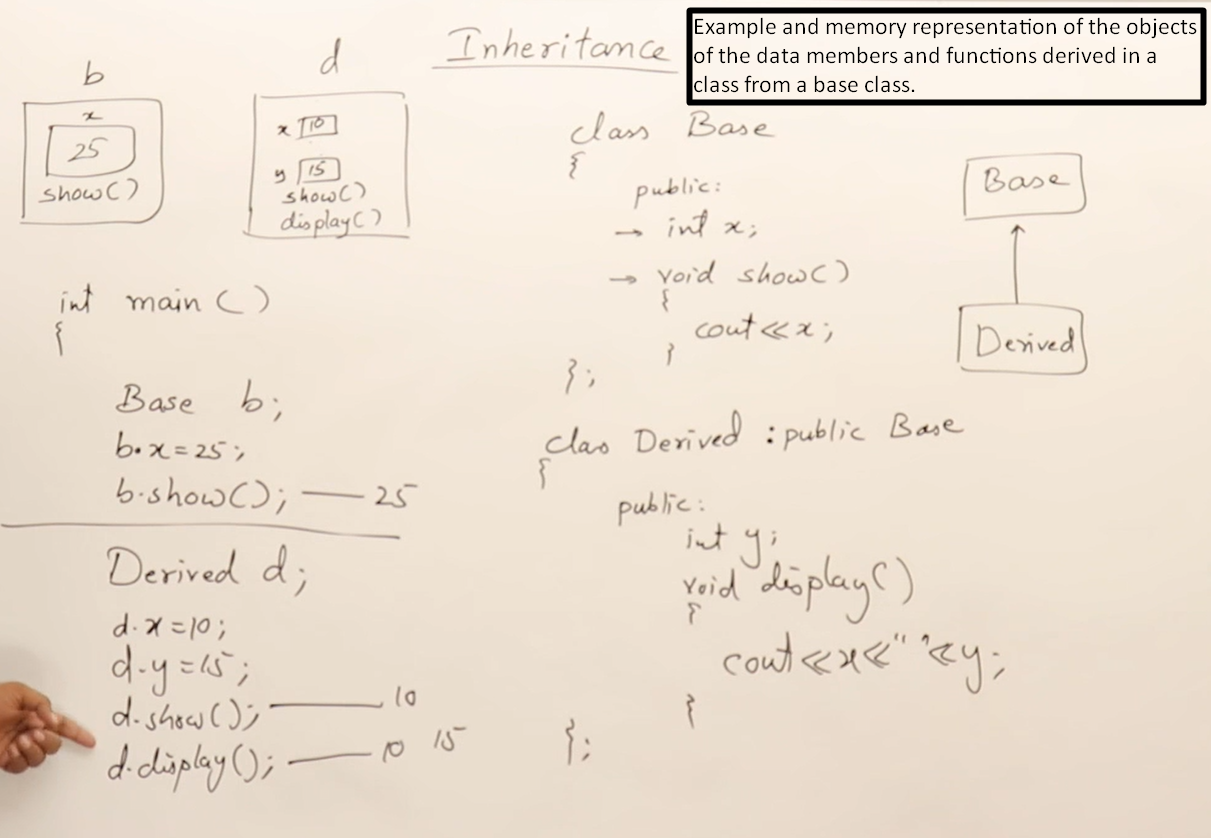 Inheritance
Example and memory representation of the objects
of the data members and functions derived in a
class from a base class.
b
x
25
show()
d
x 10
y 15
show()
display()
int main()
{
Base b;
b.x=25;
b.show(); — 25
Derived d;
d.x=10;
d.y=15;
d.show(); — 10
d.display(); — 10 15
class Base
{
public:
→ int x;
→ void show()
{
cout<<x;
}
};
class Derived : public Base
{
public:
int y;
void display()
{
cout<<x<<" "<<y;
}
};
Base
Derived